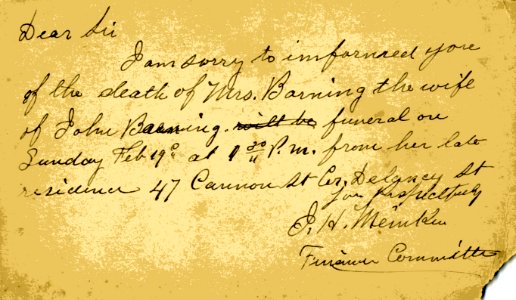 Dear Sir
I am sorry to imformed you
of the death of Mrs. Barning the wife
of John Barning. will be funeral on
Sunday Feb 19 at 1 30 P.m. from her late
residence 47 Cannon St Cor. Delancy St
your Respectfully
J. H. Meinken
Finance Committe